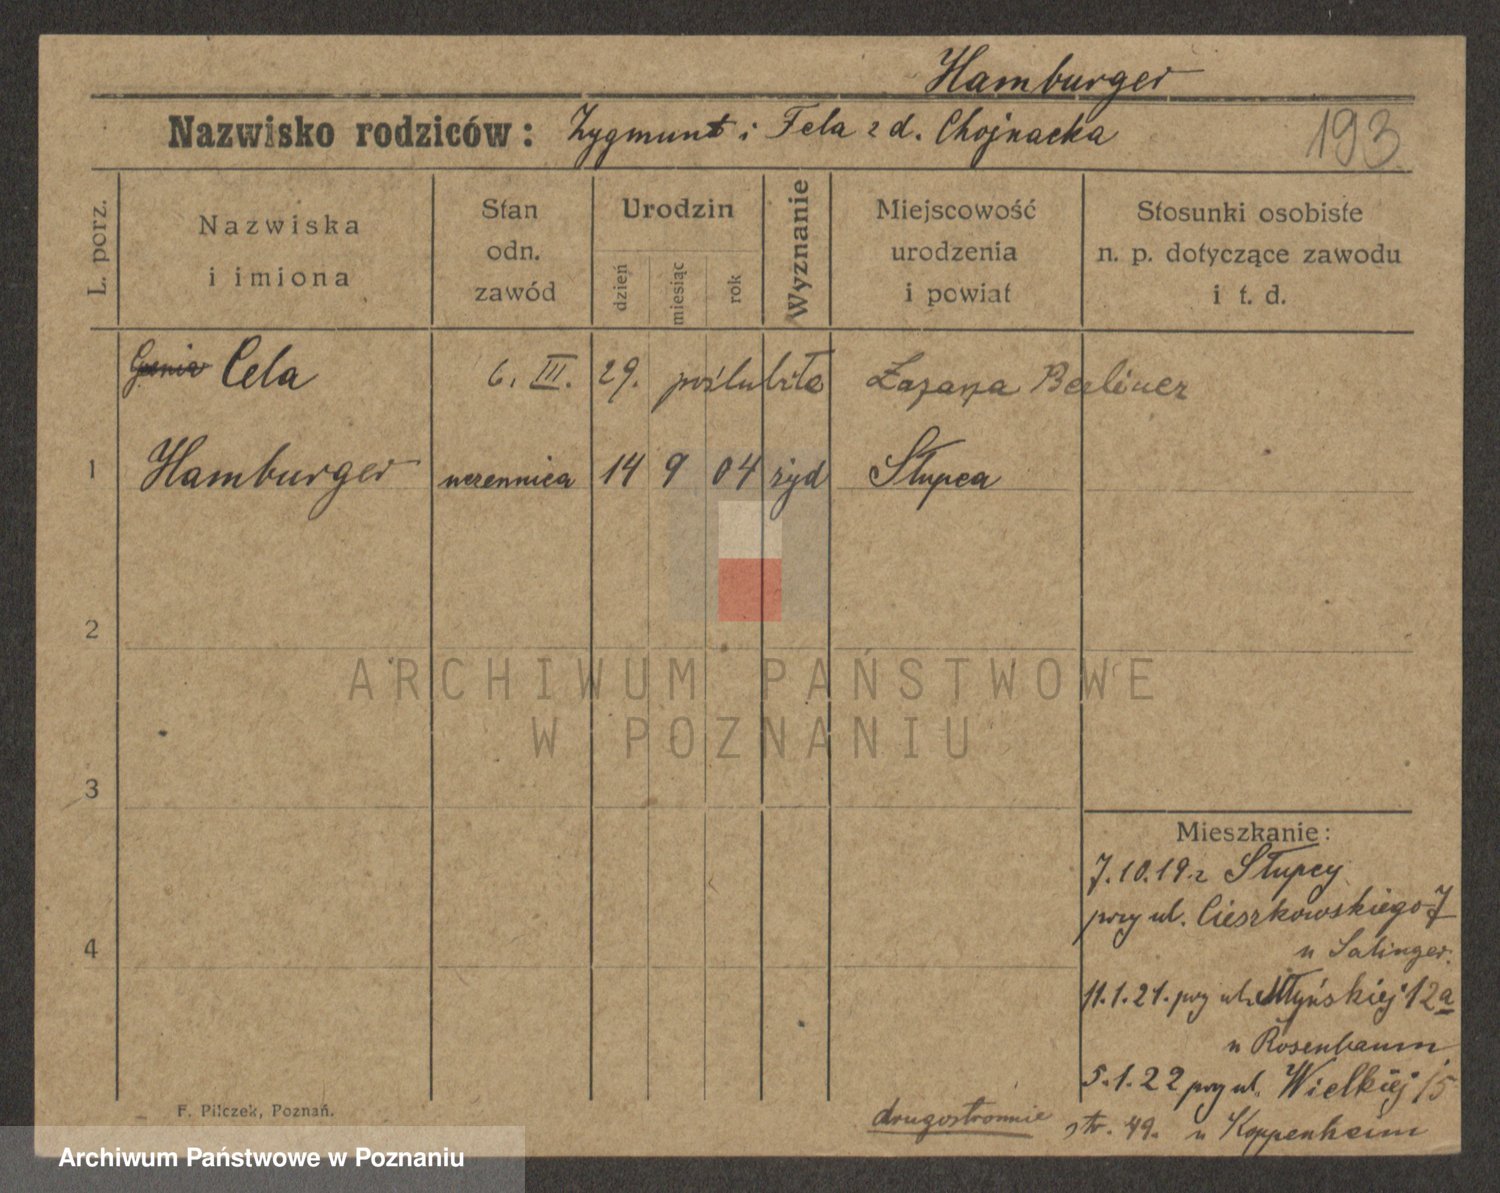 Hamburger
Nazwisko rodziców: Zygmunt i Fela z d. Chojnacka
193
L. porz.
Nazwiska
i imiona
Stan
odn.
zawód
Urodzin
dzień
miesiąc
rok
Wyznanie
Miejscowość
urodzenia
i powiat
Stosunki osobiste
n. p. dotyczące zawodu
i t. d.
Cela 6. III. 29. poślubiła Berliner
1 Hamburger uczennica 14 9 04 żyd Słupca
2
ARCHIWUM PAŃSTWOWE
W POZNANIU
3
4
Mieszkanie:
7.10.19 z Słupcy
przy ul. Cieszkowskiego 7
u Salinger.
11.1.21. przy ul. Młyńskiej 12a
u Rosenbaum
5.1.22 przy ul. Wielkiej 15
str. 49. u Koppenheim
drugostronnie
F. Pilczek, Poznań.
Archiwum Państwowe w Poznaniu